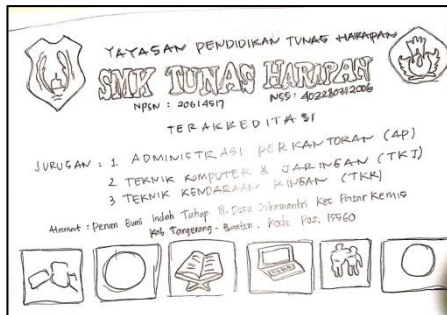 YAYASAN PENDIDIKAN TUNAS HARAPAN
SMK TUNAS HARAPAN
NPSN : 20614517 NSS : 402280312006
TERAKREDITASI
JURUSAN : 1. ADMINISTRASI PERKANTORAN (AP)
2 TEKNIK KOMPUTER & JARINGAN (TKJ)
3 TEKNIK KENDARAAN RINGAN (TKR)
Alamat : Perum Bumi Indah Tahap III. Desa Sukamantri Kec Pasar Kemis
Kab Tangerang - Banten. Kode Pos. 15560